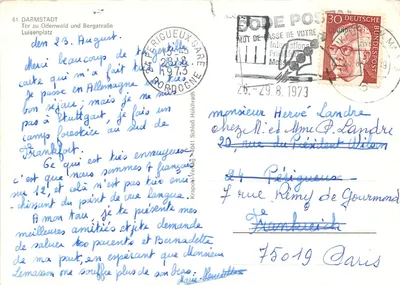 61 DARMSTADT
Tor zu Odenwald und Bergstraße
Luisenplatz
den 23. August.
Merci beaucoup de ta gentille
carte qui m'a fait
Je passe en Allemagne
bon séjour; mais je ne suis
pas à Stuttgart, je fais un
camp forestier au sud de
Frankfurt.
Ce qui est très ennuyeux
c'est que nous sommes 7 français
sur 12, et cela n'est pas très enri-
chissant du point de vue langue.
A mon tour, je te présente mes
meilleures amitiés et je te demande
de saluer tes parents et Bernadette
de ma part, en espérant que Monsieur
ne souffre plus de son bras.
24 PERIGUEUX GARE
1973
DORDOGNE
26.-29.8.1973
30
DEUTSCHE BUNDESPOST
monsieur Hervé Landre
chez M. et Mme P. Landre
20, rue du Président Wilson
24 Périgueux
7 rue Rémy de Gourmond
Frankreich
75019 Paris